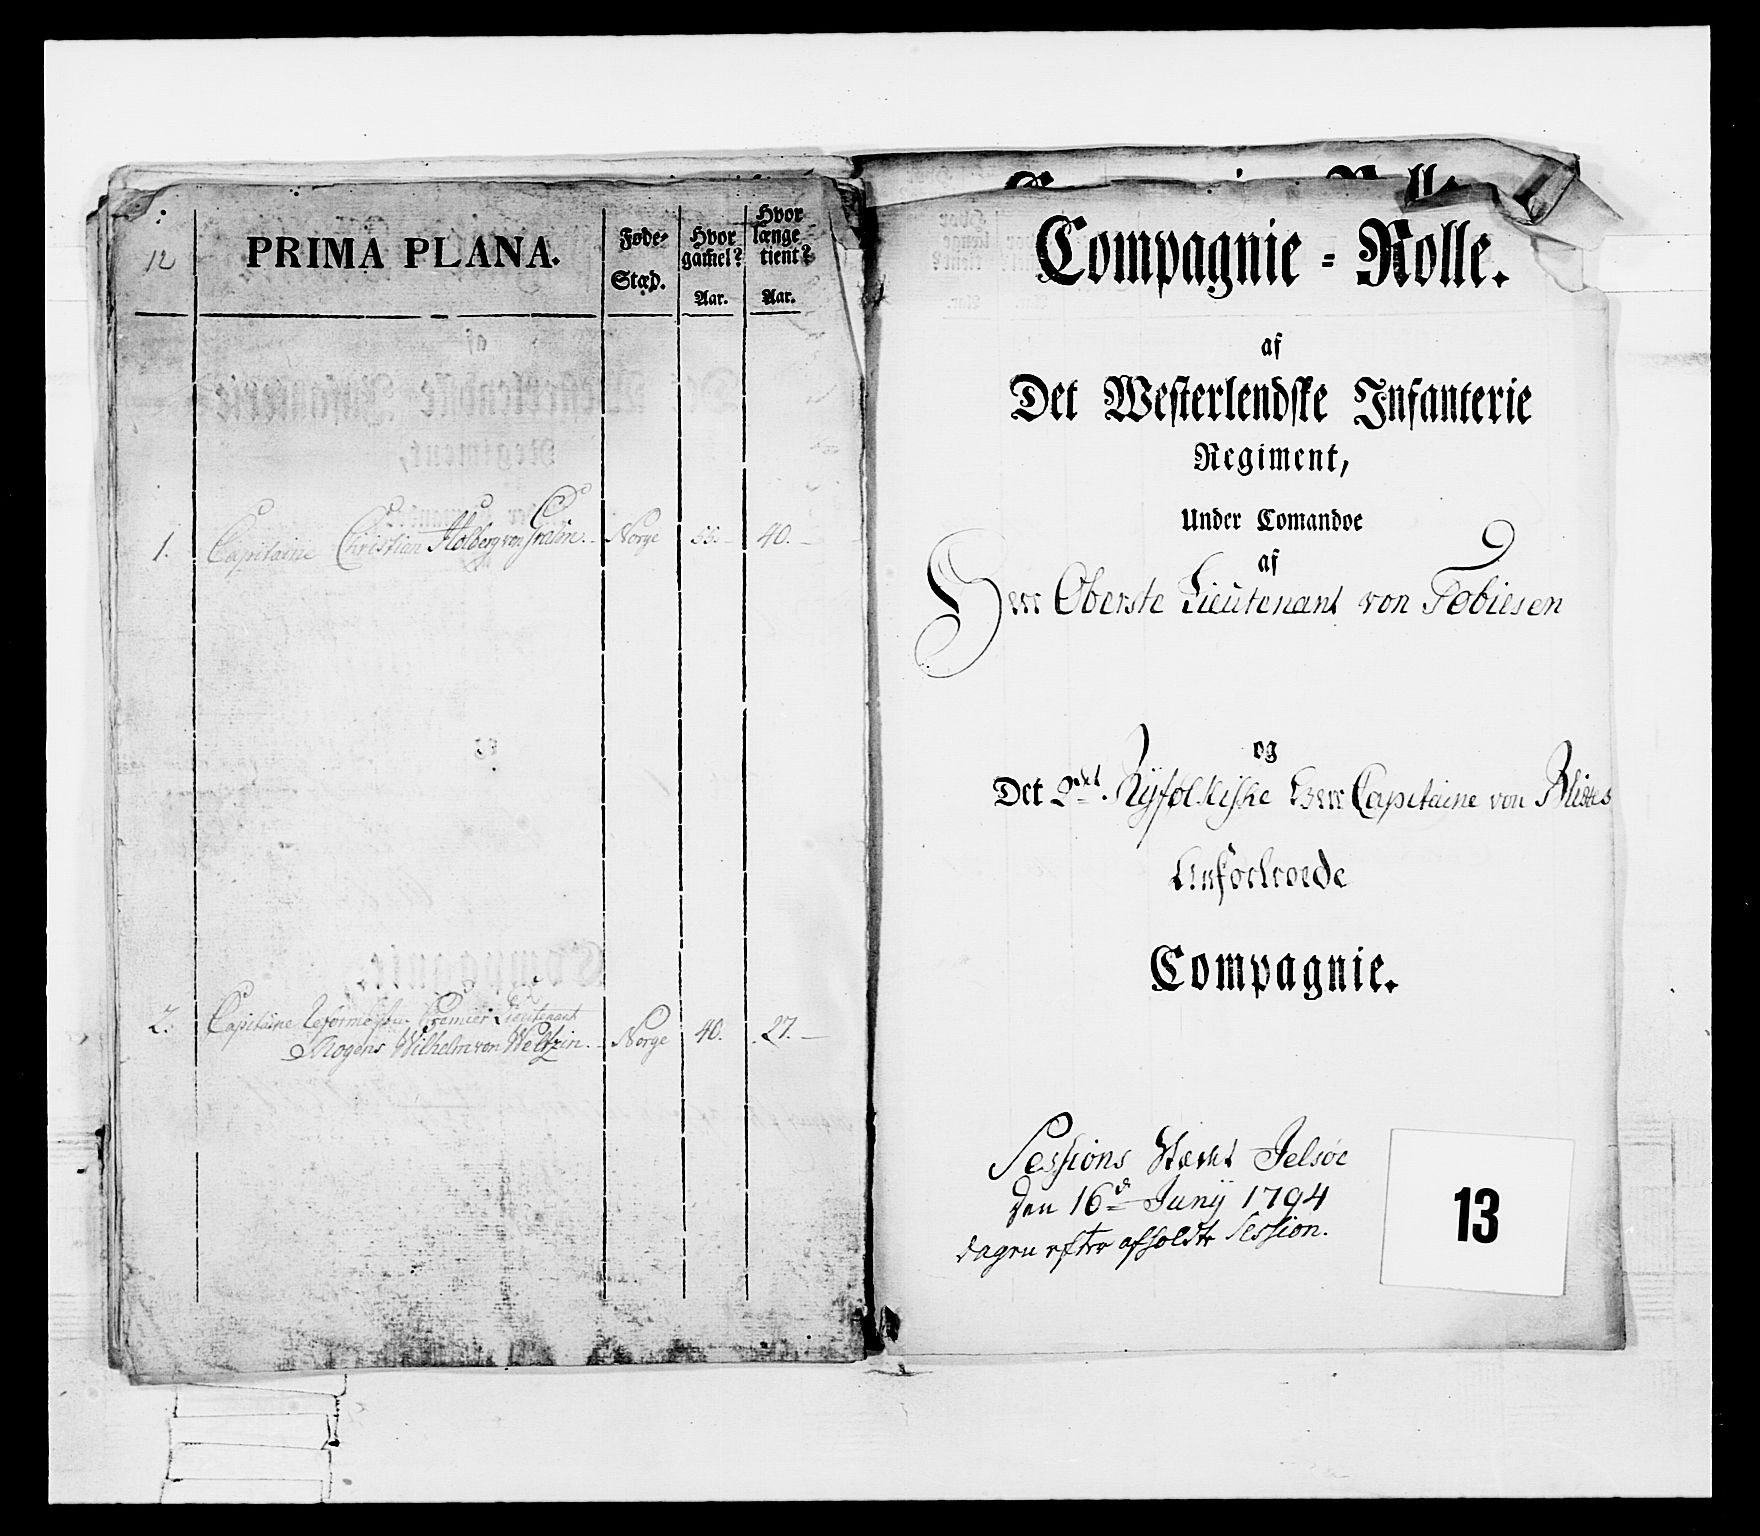 12
PRIMA PLANA.
Føde-
Stæd.
Hvor
gamel?
Aar.
Hvor
længe
tient?
Aar.
1. Capitaine Christian Holberg von Gralin. Norge 55. 40.
2. Capitaine Reforme & Premier Lieutenant
Mogens Wilhelm von Weltzin. Norge 40. 27.
Compagnie-Rolle.
af
Det Westerlendske Infanterie
Regiment,
Under Comandoe
af
Herr Oberste Lieutenant von Tobiesen
og
Det 2det Ryfølkiske Herr Capitaine von
Anførtroede
Compagnie.
Sessions Stædet Jelsøe
den 16d Junij 1794
dagen efter afholdte Session.
13